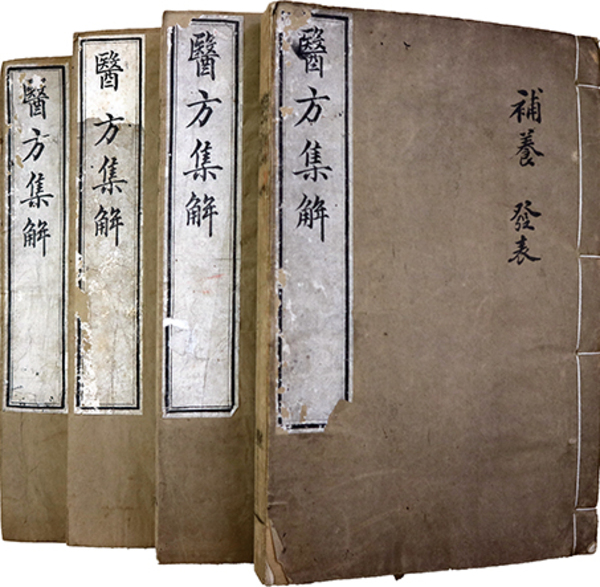 醫方集解
醫方集解
醫方集解
醫方集解
補養 發表